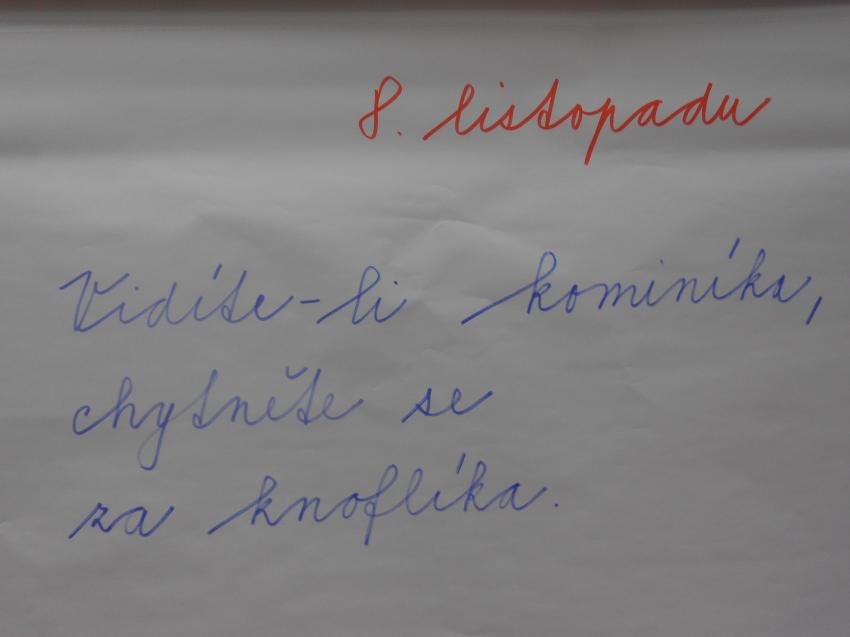 8. listopadu
Vidíte-li kominíka,
chytněte se
za knoflíka.